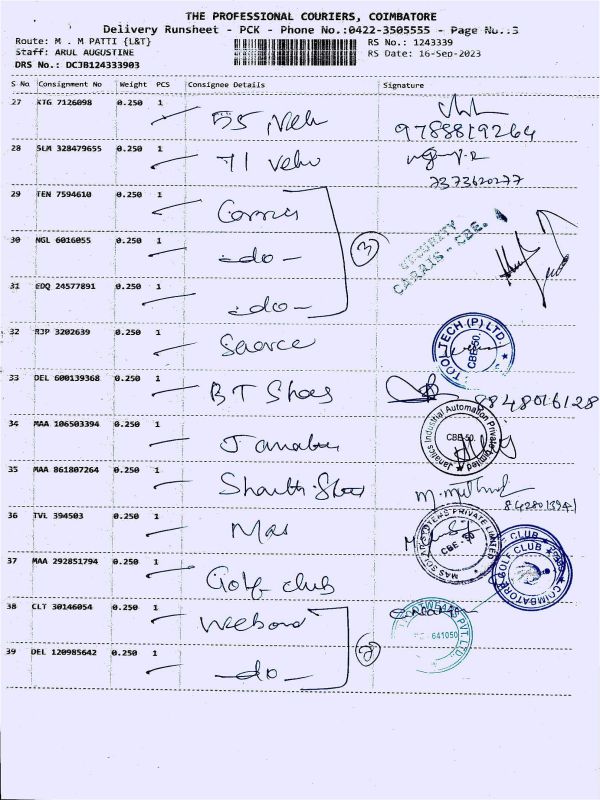 THE PROFESSIONAL COURIERS, COIMBATORE
Delivery Runsheet - PCK - Phone No.:0422-3505555 - Page No.:3
Route: M . M PATTI {L&T} RS No.: 1243339
Staff: ARUL AUGUSTINE RS Date: 16-Sep-2023
DRS No.: DCJB124333903
S No Consignment No Weight PCS Consignee Details Signature
27 KTG 7126098 0.250 1 55
9788819264
28 SLM 328479655 0.250 1 71
7373620277
29 TEN 7594610 0.250 1
SECURITY
CARRIS - CBE.
30 NGL 6016055 0.250 1 -do- 3
31 EDQ 24577891 0.250 1 -do-
32 RJP 3202639 0.250 1
TOOLTECH (P) LTD. CBE-50.
33 DEL 600139368 0.250 1 BT Shoes 8848016128
34 MAA 106503394 0.250 1
Janatics Industrial Automation Private Limited CBE-50.
35 MAA 861807264 0.250 1
36 TVL 394503 0.250 1 Mas
MAS SOLAR SYSTEMS PRIVATE LIMITED CBE - 50
37 MAA 292851794 0.250 1 Golf club
COIMBATORE GOLF CLUB
38 CLT 30146054 0.250 1
641050
PVT. LTD.
39 DEL 120985642 0.250 1 -do- 2